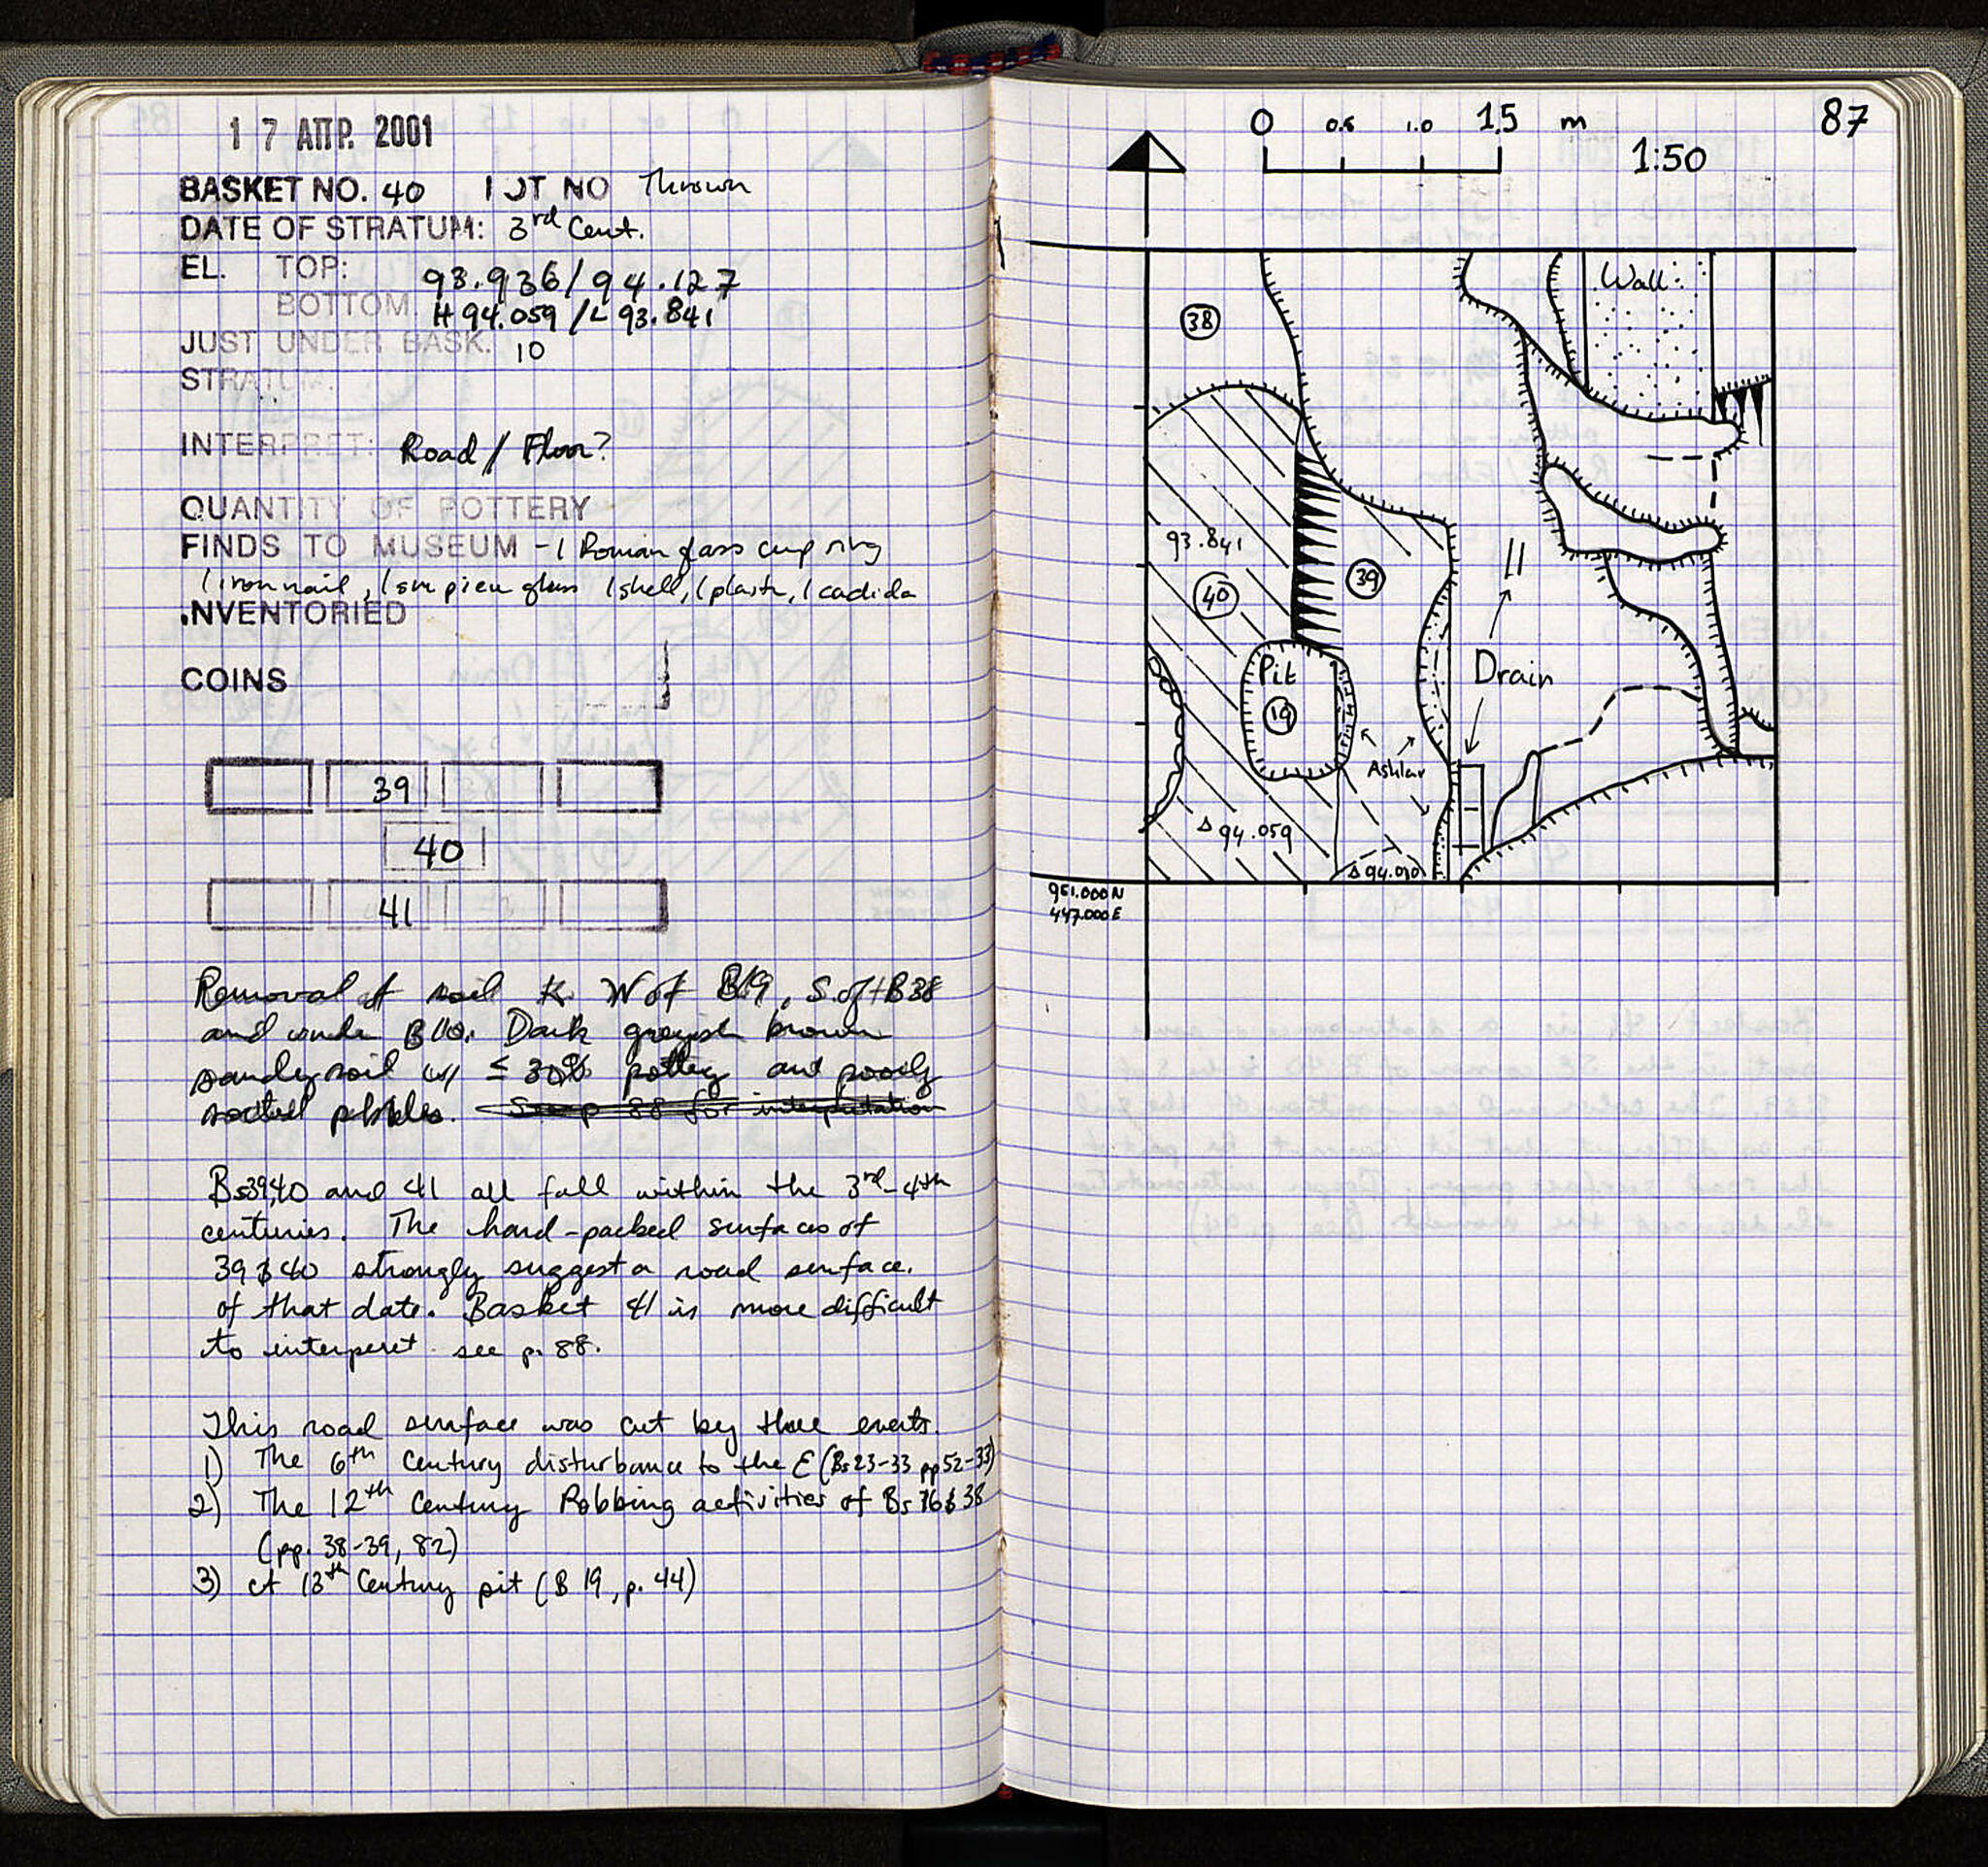 17 ΑΠΡ. 2001
BASKET NO. 40 LOT NO Thrown
DATE OF STRATUM: 3rd Cent.
EL. TOP: 93.936/94.127
BOTTOM H 94.059 / L 93.841
JUST UNDER BASK. 10
STRATUM.
INTERPRET: Road / Floor?
QUANTITY OF POTTERY
FINDS TO MUSEUM - 1 Roman glass cup ring
1 iron nail, 1 sm piece glass 1 shell, 1 plastr, 1
INVENTORIED
COINS
39
40
41
Removal of soil W of B19, S. of B38
and under B10. Dark greyish brown
sandy soil w/ ≤ 30% pottery and poorly
sorted pebbles. See p 88 for interpretation
Bs39,40 and 41 all fall within the 3rd-4th
centuries. The hard-packed surfaces of
39 & 40 strongly suggest a road surface.
of that date. Basket 41 is more difficult
to interperet see p. 88.
This road surface was cut by three events.
1) The 6th Century disturbance to the E (Bs 23-33 pp 52-33)
2) The 12th Century Robbing activities of Bs 16 & 38
(pp. 38-39, 82)
3) A 13th Century pit (B 19, p. 44)
87
0 0.5 1.0 1.5 m
1:50
Wall
38
93.841
40
39
11
Pit
19
Drain
Ashlar
94.059
94.010
951.000 N
447.000 E